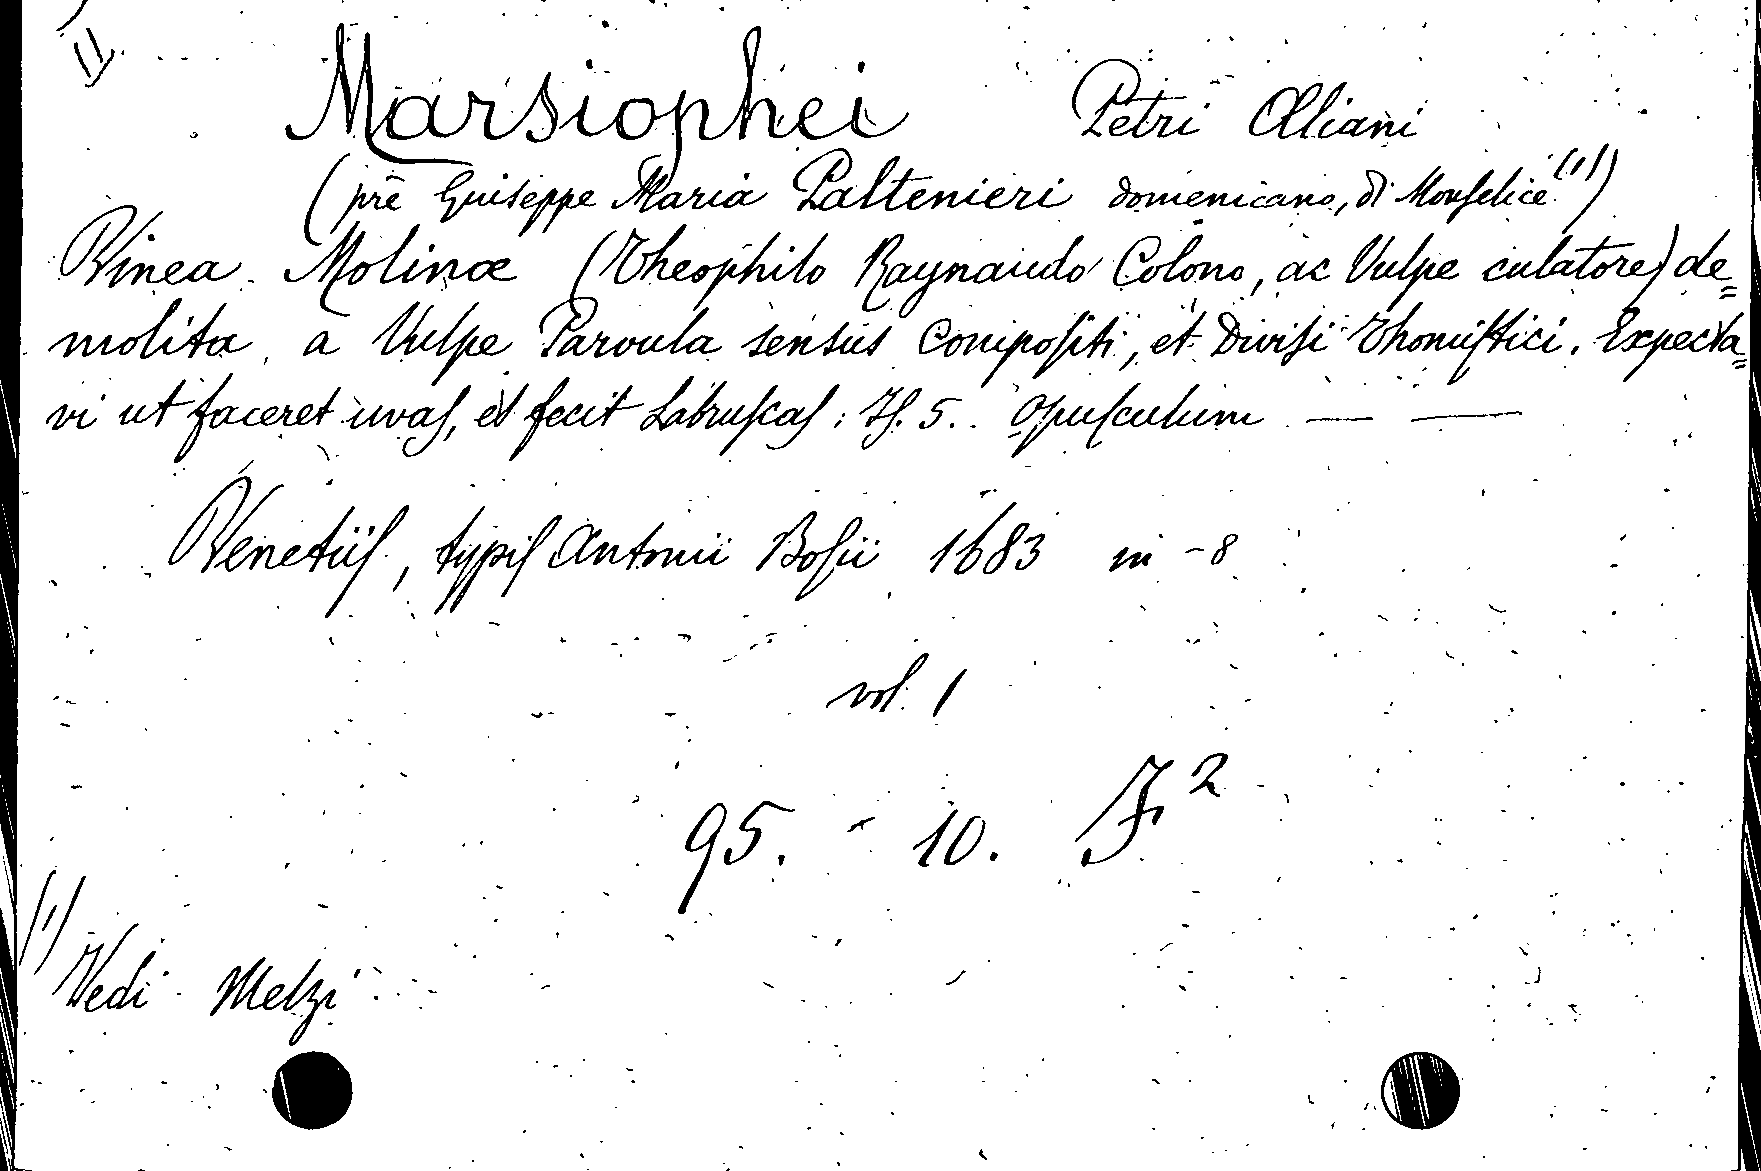 Marsiophei Petri Alliani
(pre Giuseppe Maria Paltenieri domenicano, di Monselice (1))
Vinea Molinæ (Theophilo Raynaudo Colono, ac Vulpe culatore) de=
molita a Vulpe Parvula sensus Compositi, et Divisi Thomistici. Expecta=
vi ut faceret uvas, et fecit Labruscas: Is. 5. Opusculum — —
Venetiis, typis Antonii Bosii 1683 in-8
vol. 1
95. - 10. F²
(1)
Vedi Melzi